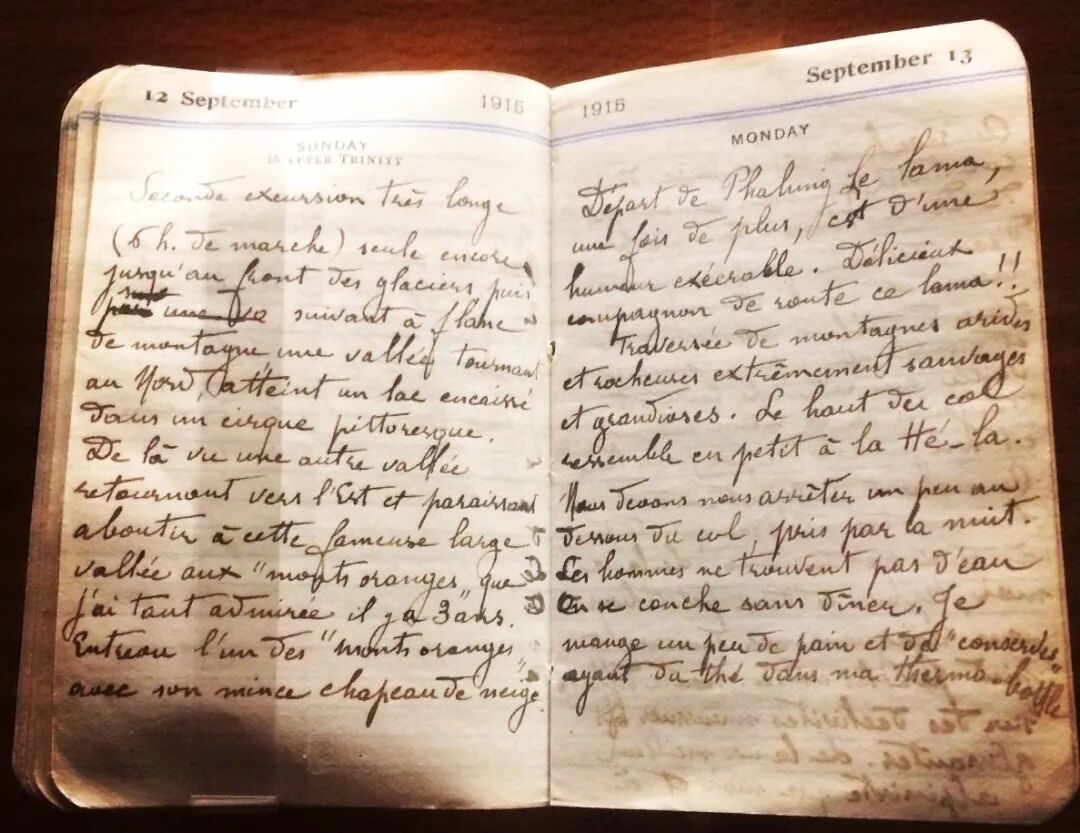 12 September 1915
SUNDAY
15 AFTER TRINITY
Seconde excursion très longe
(6 h. de marche) seule encore
jusqu'au front des glaciers puis
suivant à flanc
de montagne une vallée tournant
au Nord, atteint un lac encaissé
dans un cirque pittoresque.
De là vu une autre vallée
retournant vers l'Est et paraissant
aboutir à cette fameuse large
vallée aux "monts oranges" que
j'ai tant admirée il y a 3 ans.
Entrevu l'un des "monts oranges"
avec son mince chapeau de neige
1915 September 13
MONDAY
Départ de Phalung Le lama,
une fois de plus, est d'une
humeur exécrable. Délicieux
compagnon de route ce lama!!
Traversée de montagnes arides
et rocheuses extrêmement sauvages
et grandioses. Le haut du col
ressemble en petit à la Hé-la.
Nous devons nous arrêter un peu au
dessous du col, pris par la nuit.
Les hommes ne trouvent pas d'eau
On se couche sans dîner. Je
mange un peu de pain et de "conserves"
ayant du thé dans ma thermo-bottle